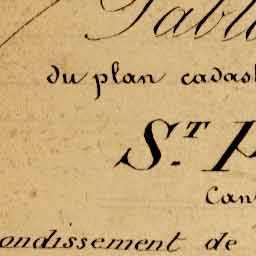 Tabl
du plan cadas
S.T P
Can
ondissement de